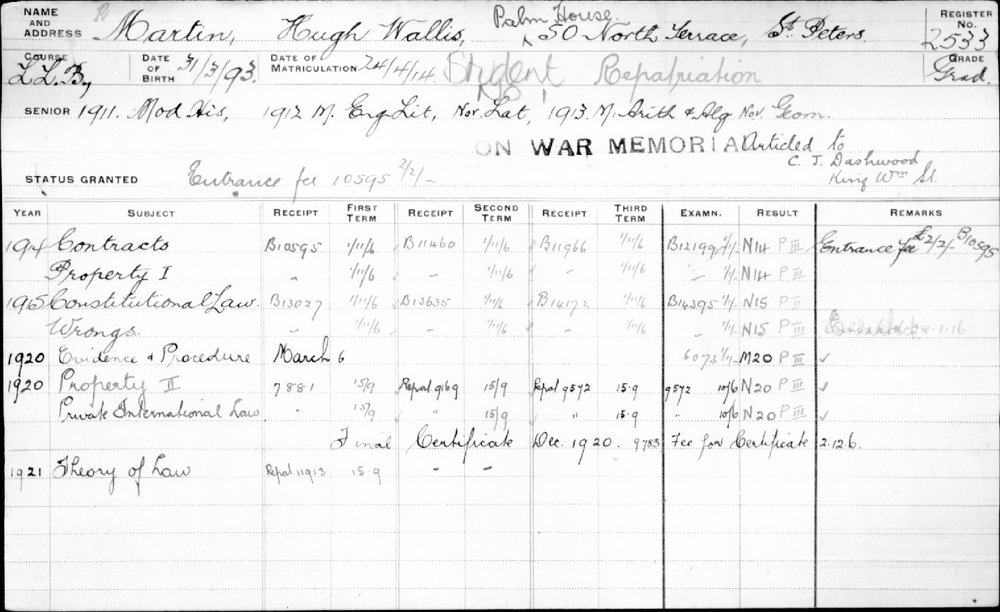 NAME AND ADDRESS Martin, Hugh Wallis, Palm House 50 North Terrace, St Peters. REGISTER No. 2533
COURSE LL.B. DATE OF BIRTH 31/3/93. DATE OF MATRICULATION 24/4/14 Student Repatriation GRADE Grad.
SENIOR 1911. Mod His, 1912 M. Eng Lit, Nov. Lat, 1913 M. Arith & Alg Nov. Geom.
ON WAR MEMORIAL Articled to
C. J. Dashwood
King Wm St.
STATUS GRANTED Entrance fee 10595 2/2/-
YEAR SUBJECT RECEIPT FIRST TERM RECEIPT SECOND TERM RECEIPT THIRD TERM EXAMN. RESULT REMARKS
1914 Contracts B10595 1/11/6 B11460 1/11/6 B11966 1/11/6 B12199 1/1/- N14 P III Entrance fee £2/2/- B10595
Property I " 1/11/6 " 1/11/6 " 1/11/6 " 1/1/- N14 P III
1915 Constitutional Law. B13027 1/11/6 B13635 1/11/6 B14172 1/11/6 B14395 1/1/- N15 P II
Wrongs. " 1/11/6 " 1/11/6 " 1/11/6 " 1/1/- N15 P II 28.1.16
1920 Evidence & Procedure March 6 6073 1/1/- M20 P III ✓
1920 Property II 7881 15/9 Repat 9169 15/9 Repat 9572 15.9 9572 10/6 N20 P III ✓
Private International Law " 15/9 " 15/9 " 15.9 " 10/6 N20 P III ✓
Final Certificate Dec. 1920. 9783 Fee for Certificate 2.12.6.
1921 Theory of Law Repat 11913 15.9 - -